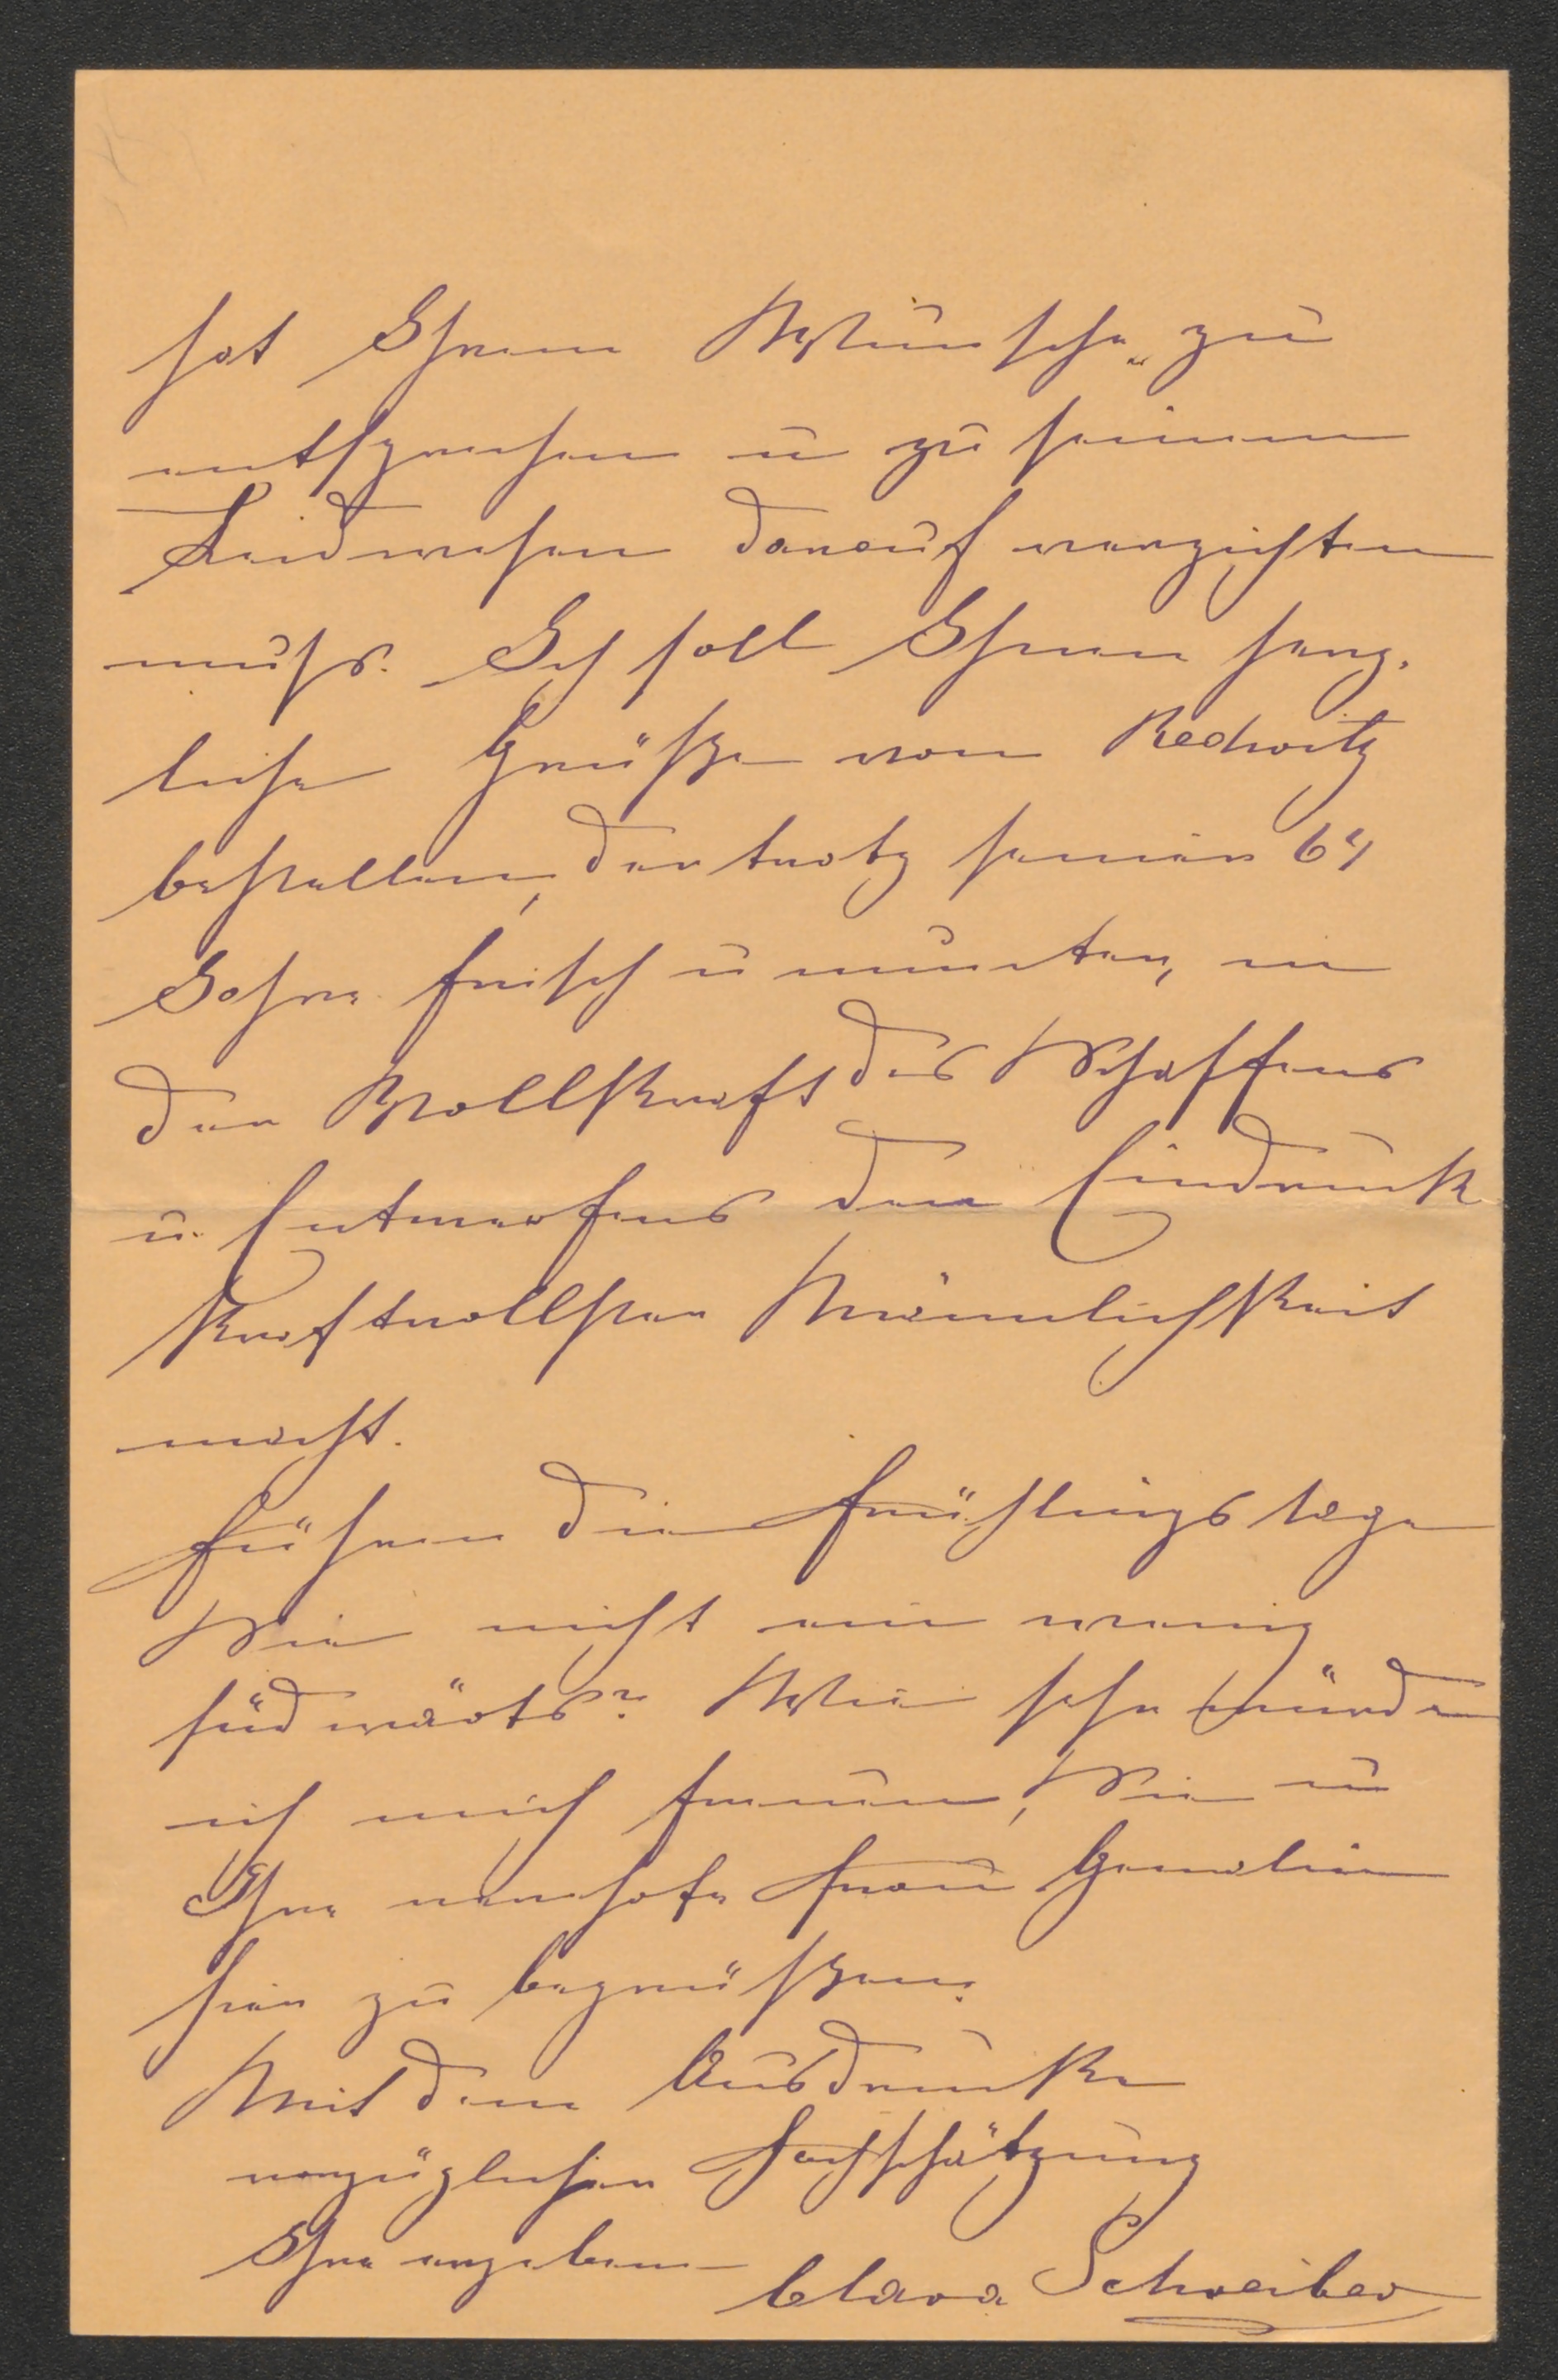 hat Ihrem Wunsche zu
entsprechen u zu seinem
Leidwesen darauf verzichten
muss. Ich soll Ihnen herz-
liche Grüße von Redwitz
bestellen, der trotz seiner 64
Jahre frisch u munter, in
der Vollkraft des Schaffens
u. Entwerfens den Eindruck
kraftvollster Männlichkeit
macht.
Führen die Frühlingstage
Sie nicht ein wenig
südwärts? Wie sehr würde
ich mich freuen, Sie u
Ihre verehrte Frau Gemalin
hier zu begrüßen.
Mit dem Ausdrucke
vorzüglicher Hochschätzung
Ihre ergebene
Clara Schreiber